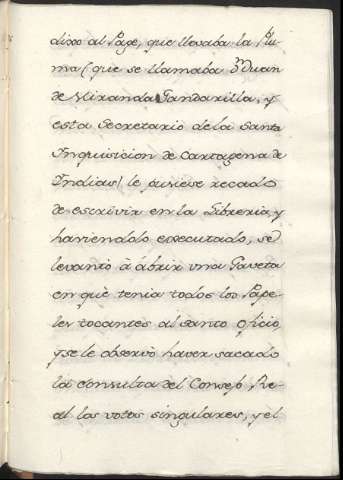 dixo al Page, que llevaba la Plu-
ma (que se llamaba Dn Juan
de Miranda Gandarilla, y
esta Secretario de la Santa
Inquisicion de Cartagena de
Indias) le pusiese recado
de escrivir en la Libreria, y
haviendolo executado, se
levantò à abrir una Gaveta
en què tenia todos los Pape-
les tocantes al santo oficio,
y se le observò haver sacado
la consulta del Consejo Re-
al los votos singulares, y el